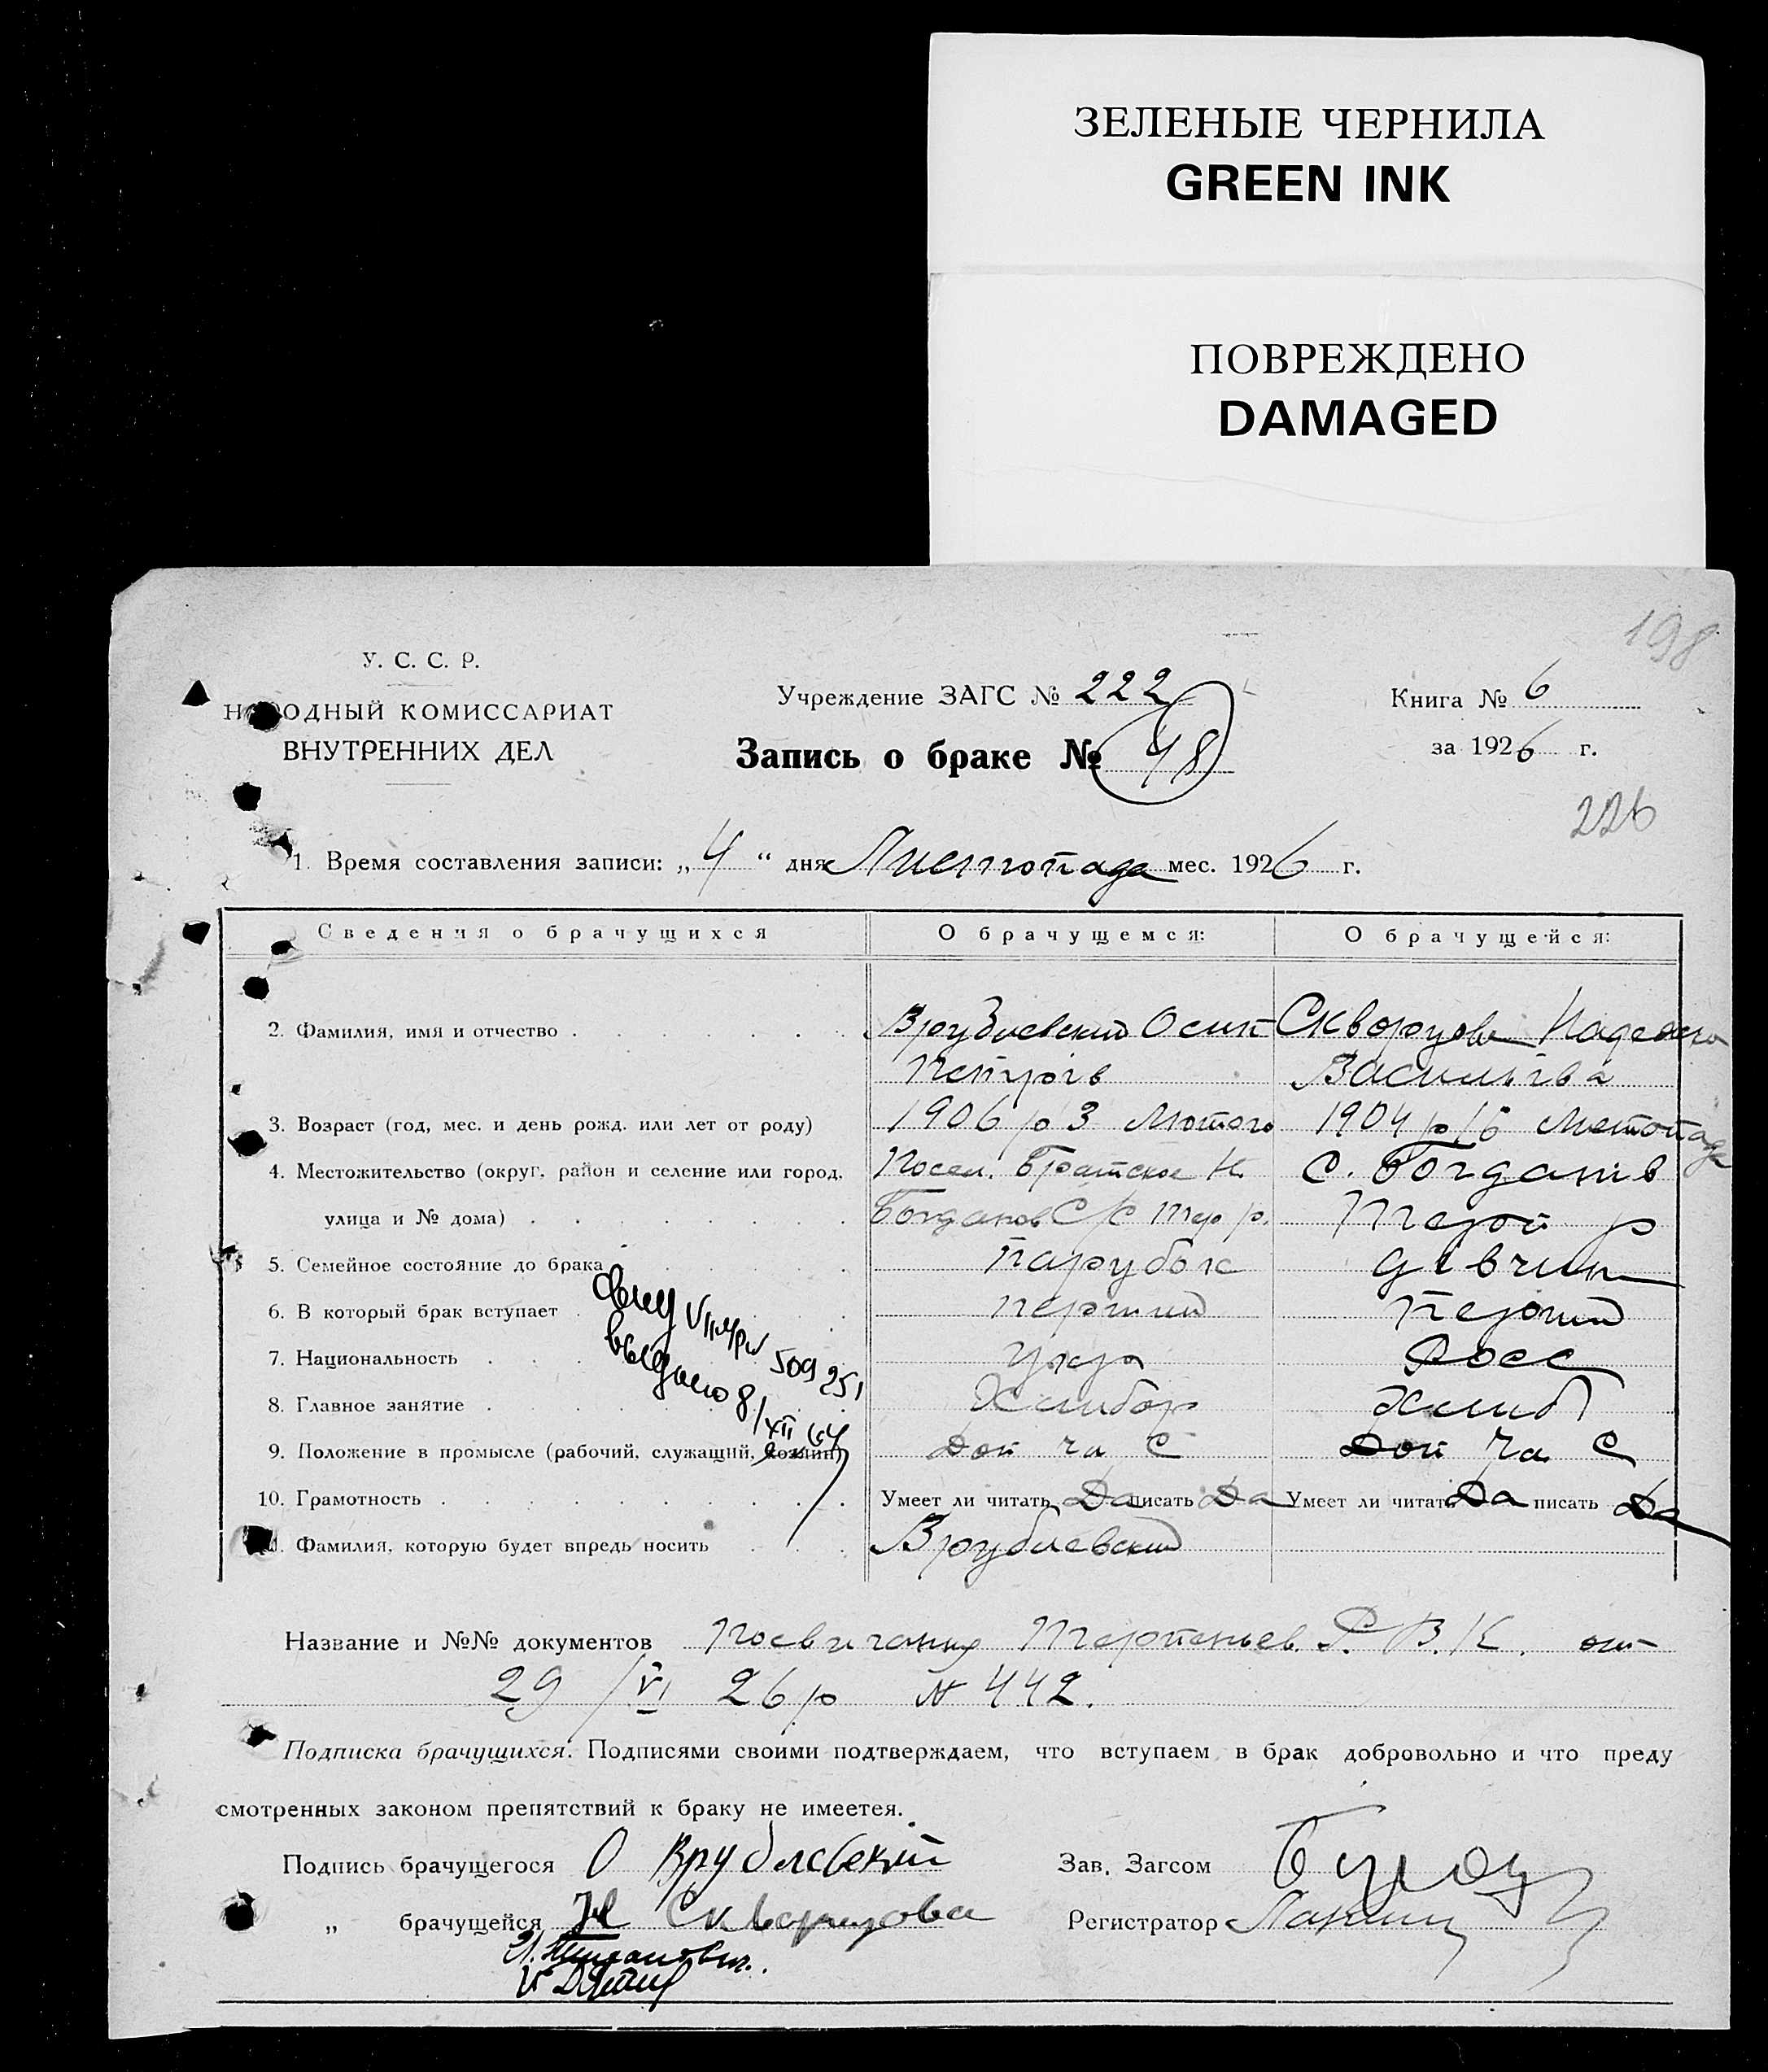 ЗЕЛЕНЫЕ ЧЕРНИЛА
GREEN INK
ПОВРЕЖДЕНО
DAMAGED
198
У. С. С. Р.
НАРОДНЫЙ КОМИССАРИАТ
ВНУТРЕННИХ ДЕЛ
Учреждение ЗАГС № 222
Запись о браке № 48
Книга № 6
за 1926 г.
226
1. Время составления записи: „4“ дня Листопада мес. 1926 г.
Сведения о брачущихся О брачущемся: О брачущейся:
2. Фамилия, имя и отчество Врублевский Осип Скворцова Надежда
Петрів Василівна
3. Возраст (год, мес. и день рожд. или лет от роду) 1906 р 3 Лютого 1904 р 16 Листопада
4. Местожительство (округ, район и селение или город, Посел. Братское Н. с. Богданів
улица и № дома) Богданов С/С Тер р. р
5. Семейное состояние до брака Парубок дівчин
6. В который брак вступает перший Перший
7. Национальность Укр Росс
8. Главное занятие Хлибор Хлиб
9. Положение в промысле (рабочий, служащий, хозяин) Доп Чл С Доп Чл С
10. Грамотность Умеет ли читать Да писать Да Умеет ли читать Да писать Да
11. Фамилия, которую будет впредь носить Врублевский
выдано 8/XII 64
509251
Название и №№ документов Посвичення Р.В.К. от
29/VI 26 р № 442.
Подписка брачущихся. Подписями своими подтверждаем, что вступаем в брак добровольно и что преду
смотренных законом препятствий к браку не имеетея.
Подпись брачущегося О Врублевский Зав. Загсом
„ брачущейся Н Скварцова Регистратор